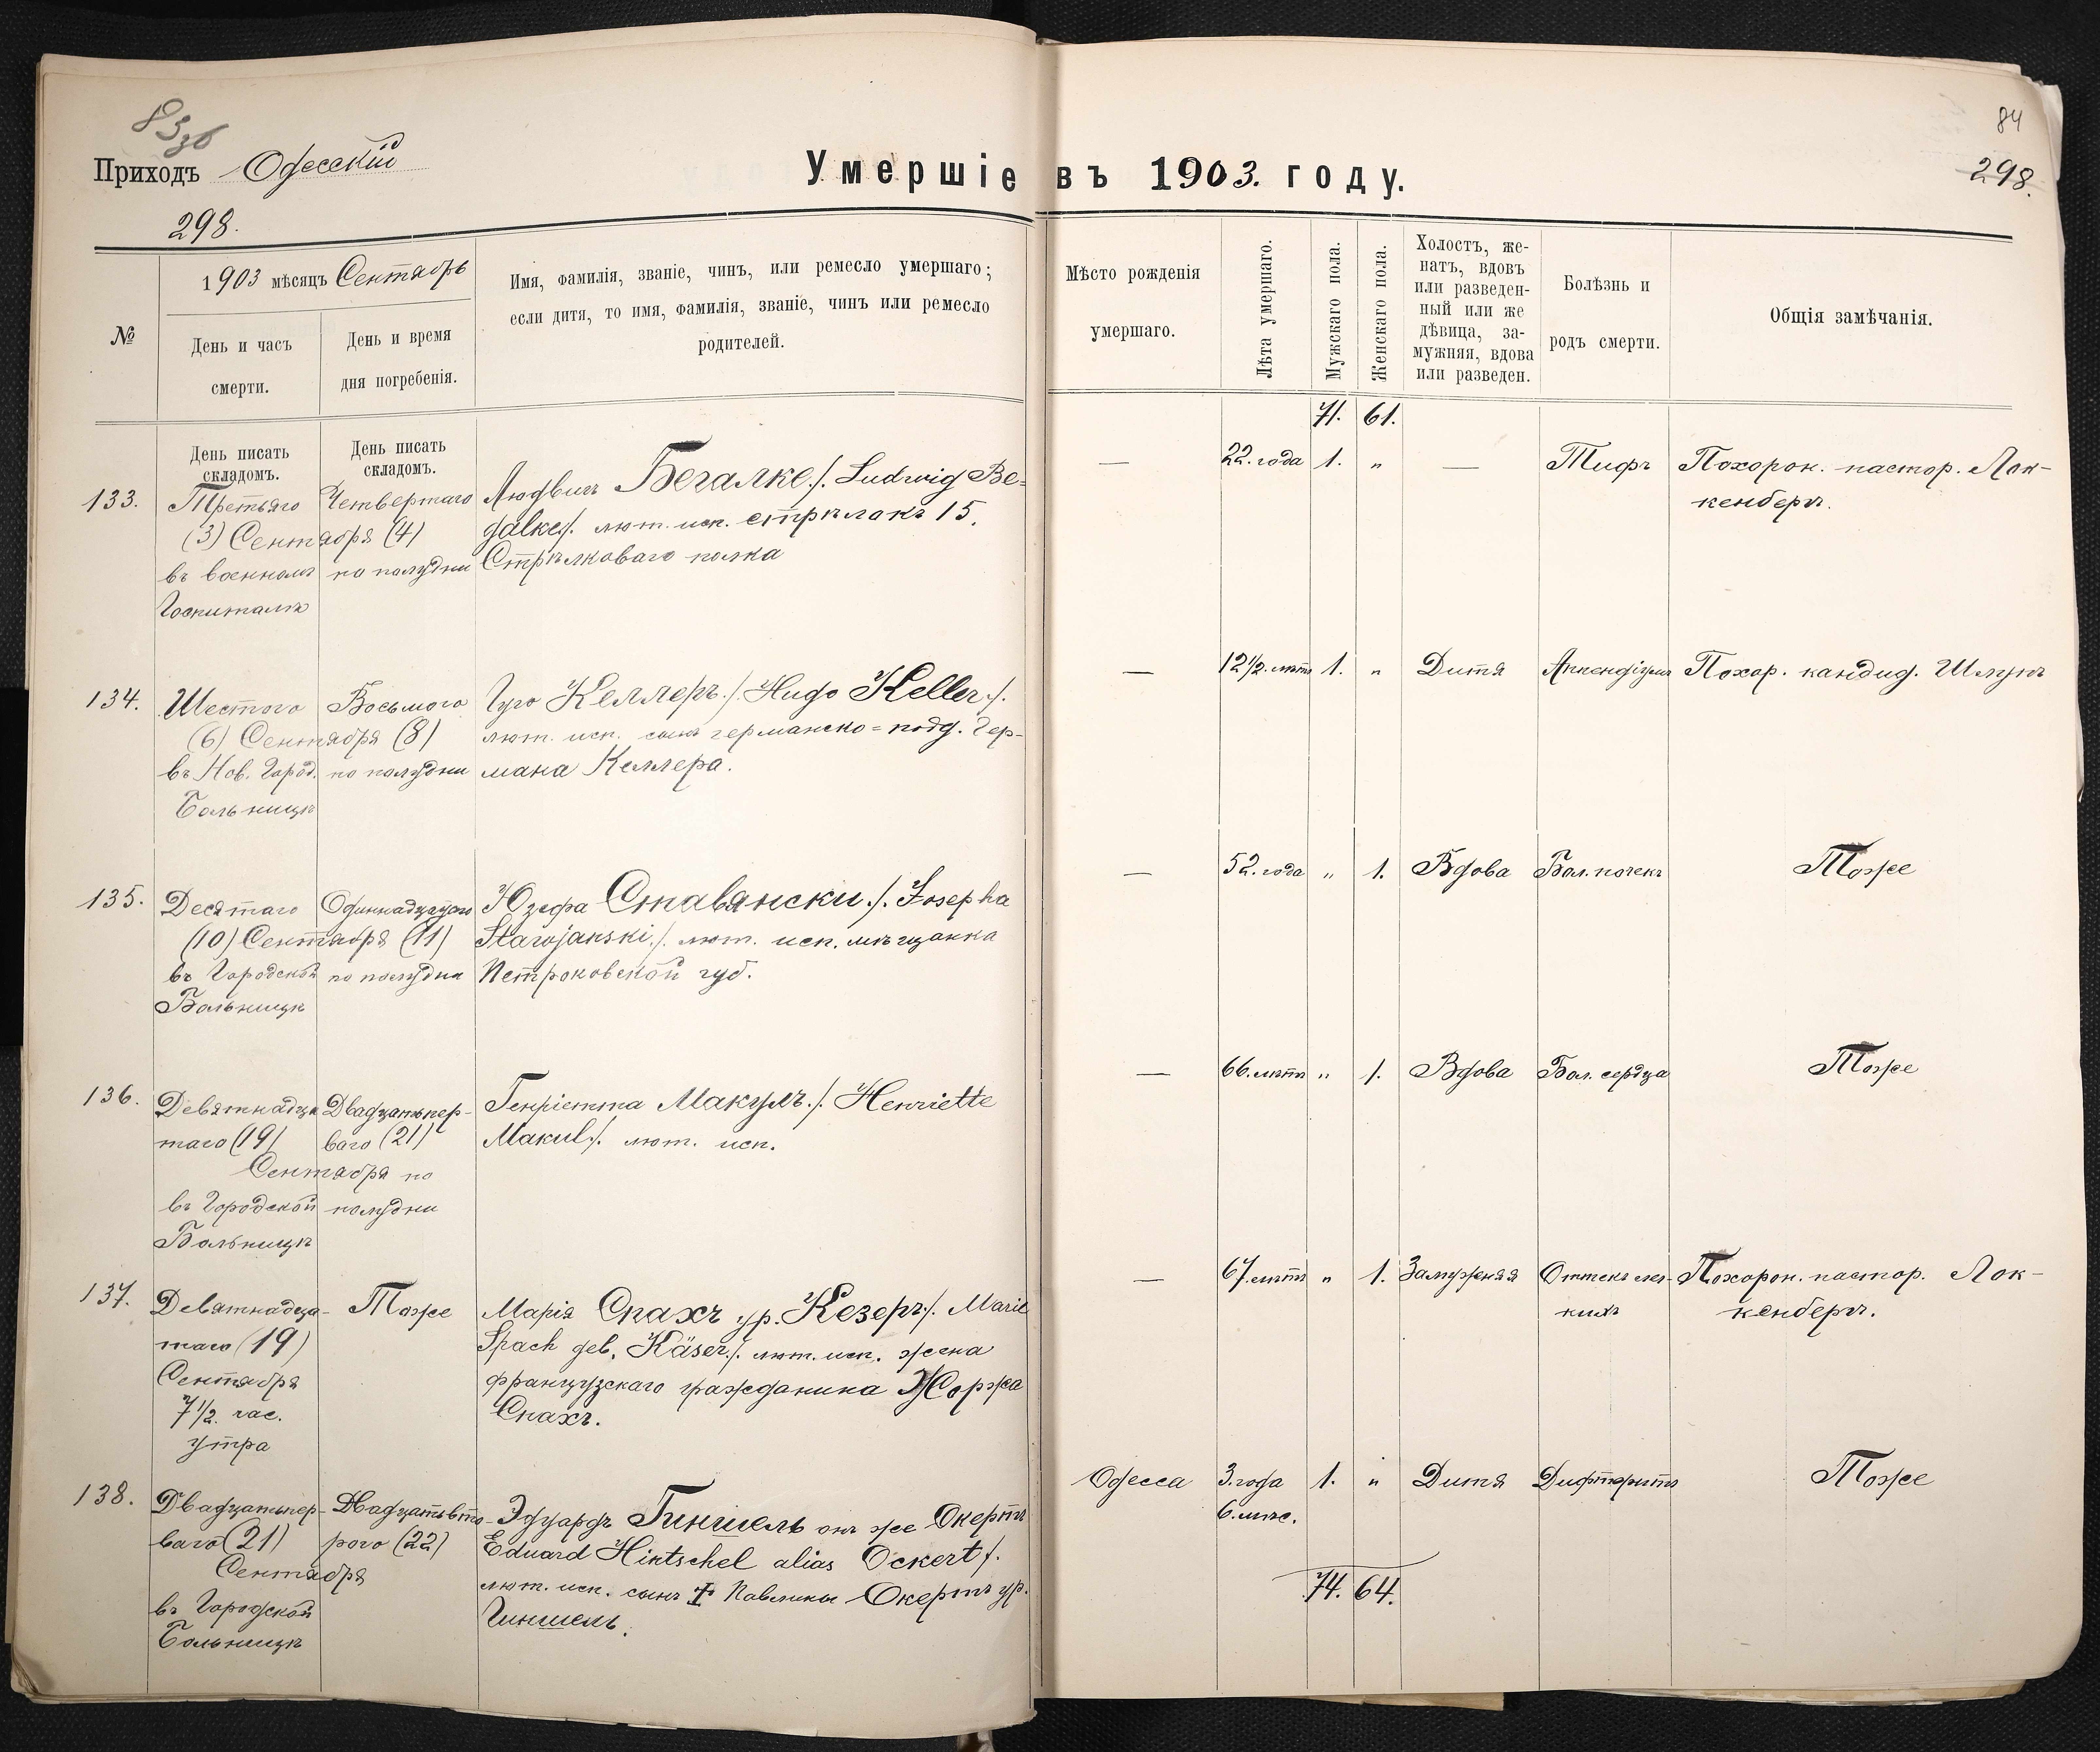 83 об
Приходъ Одесскій
Умершіе въ 1903. году.
84
298.
298.
№
1903 мѣсяцъ Сентябрь
День и часъ
смерти.
День и время
дня погребенія.
Имя, фамилія, званіе, чинъ, или ремесло умершаго;
если дитя, то имя, фамилія, званіе, чинъ или ремесло
родителей.
Мѣсто рожденія
умершаго.
Лѣта умершаго.
Мужскаго пола.
Женскаго пола.
Холостъ, же-
натъ, вдовъ
или разведен-
ный или же
дѣвица, за-
мужняя, вдова
или разведен.
Болѣзнь и
родъ смерти.
Общія замѣчанія.
71. 61.
День писать
складомъ.
День писать
складомъ.
133.
Третьяго
(3) Сентября (4)
въ военномъ
Госпиталѣ
Четвертаго
по полудни
Людвигъ Бегалке ./. Ludwig Be=
galke ./. лют. исп. стрѣлокъ 15.
Стрѣлковаго полка
—
22. года
1.
"
—
Тифъ
Похорон. пастор. Лок-
кенбергъ.
134.
Шестого
(6) Сентября (8)
въ Нов. Город.
Больницѣ
Восьмого
по полудни
Гуго Келлеръ ./. Hugo Keller ./.
лют. исп. сынъ германско=подд. Гер-
мана Келлера.
—
12 1/2. лѣтъ
1.
"
Дитя
Аппендицитъ
Похор. кандид. Шлупъ
135.
Десятаго
(10) Сентября (11)
въ Городской
Больницѣ
Одиннадцатаго
по полудни
Юзефа Ставянски ./. Josepha
Starojanski ./. лют. исп. мѣщанка
Петроковской губ.
—
52. года
"
1.
Вдова
Бол. почекъ
Тоже
136.
Девятнадца
таго (19)
Сентября по
въ Городской
Больницѣ
Двадцатьпер-
ваго (21)
полудни
Генріетта Макулъ ./. Henriette
Makul ./. лют. исп.
—
66. лѣтъ
"
1.
Вдова
Бол. сердца
Тоже
137.
Девятнадца-
таго (19)
Сентября
7 1/2. час.
утра
Тоже
Марія Спахъ ур. Кезеръ ./. Marie
Spach geb. Käser ./. лют. исп. жена
французскаго гражданина Жоржа
Спахъ.
—
67. лѣтъ
"
1.
Замужняя
Оттекъ лег-
кихъ
Похорон. пастор. Лок-
кенбергъ.
138.
Двадцатьпер-
ваго (21)
Сентября
въ Городской
Больницѣ
Двадцатьвто-
рого (22)
Эдуардъ Гиншель онъ же Окертъ
Eduard Hintschel alias Ockert ./.
лют. исп. сынъ Павлины Окертъ ур.
Гиншель.
Одесса
3. года
6. мѣс.
1.
"
Дитя
Дифтеритъ
Тоже
74. 64.